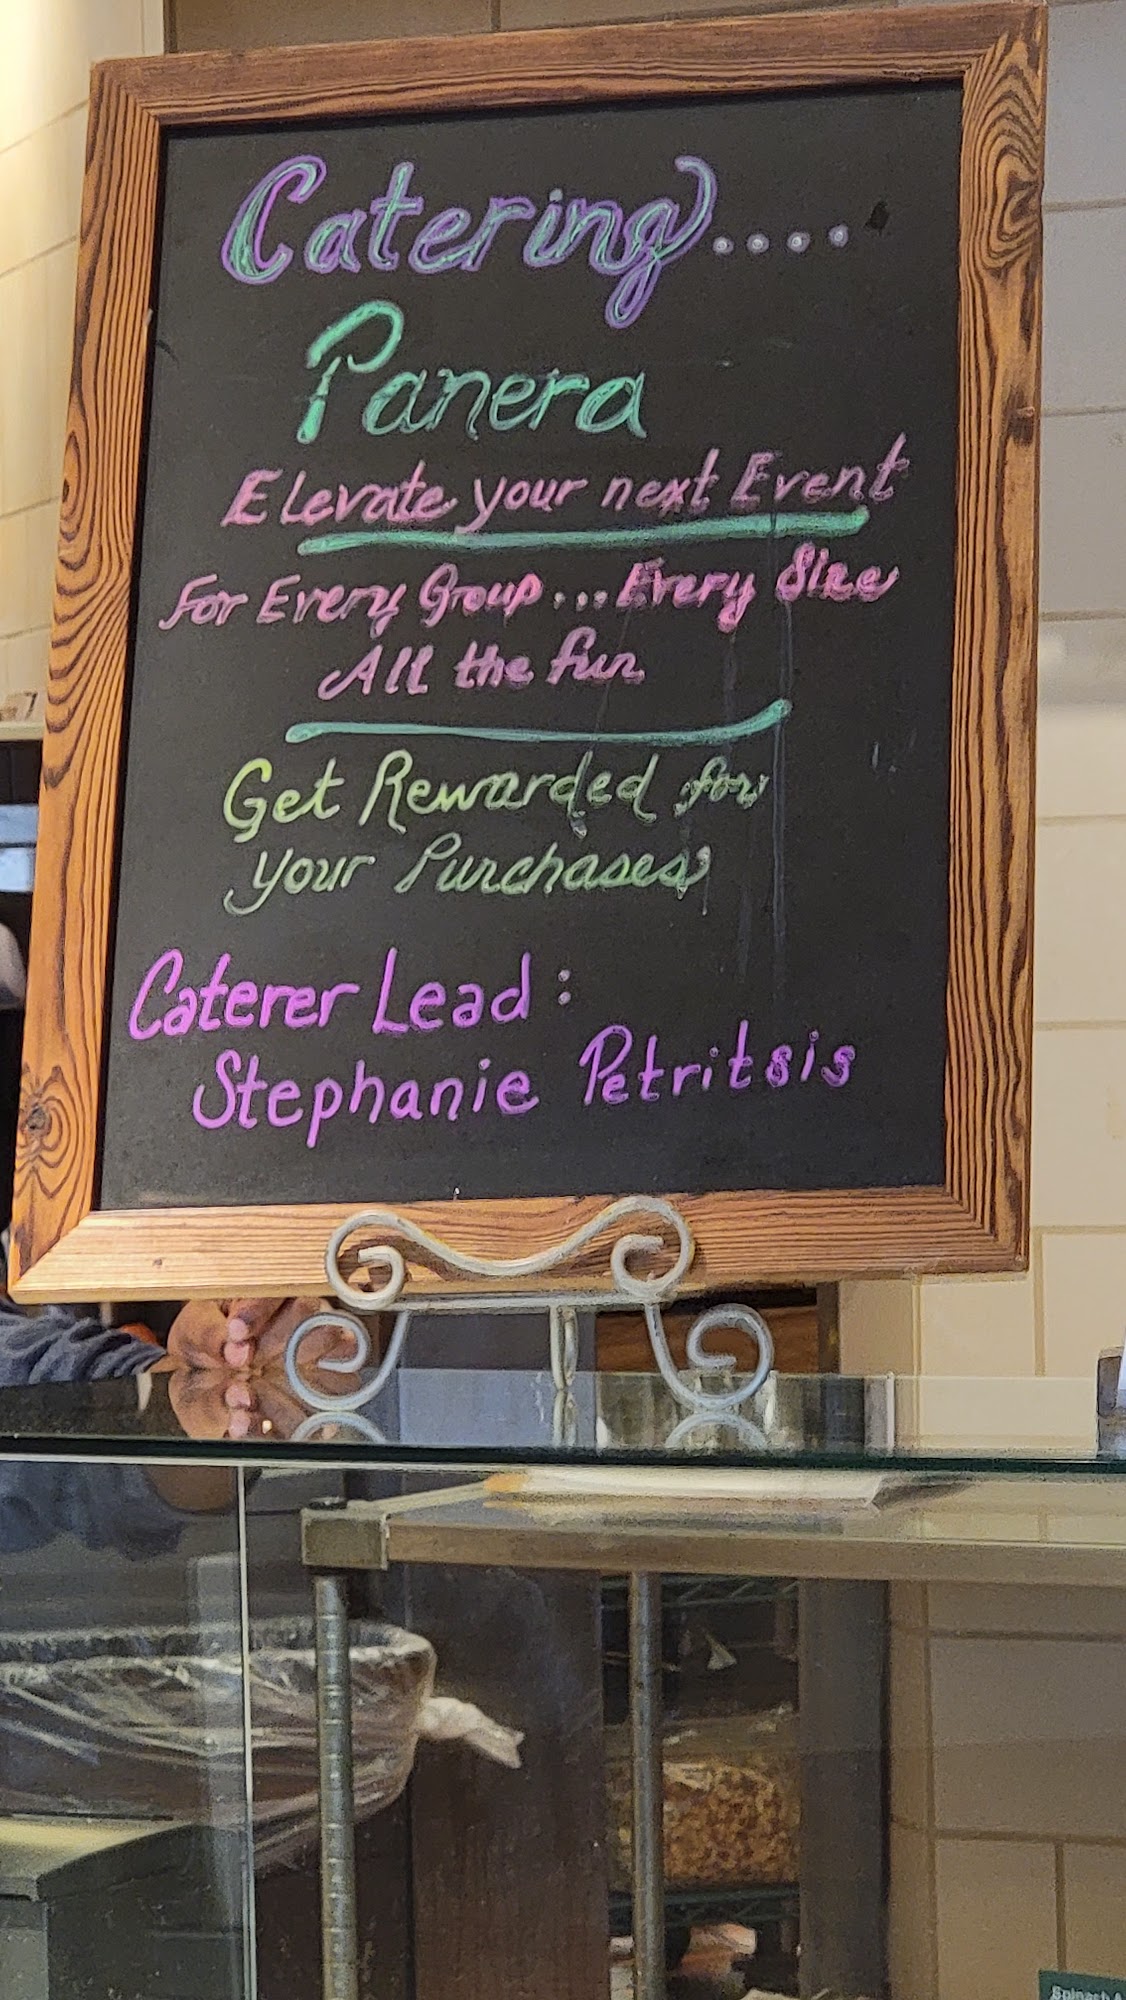 Catering....
Panera
Elevate your next Event
For Every Group...Every Size
All the fun
Get Rewarded for
your Purchases
Caterer Lead :
Stephanie Petritsis
Spinach &